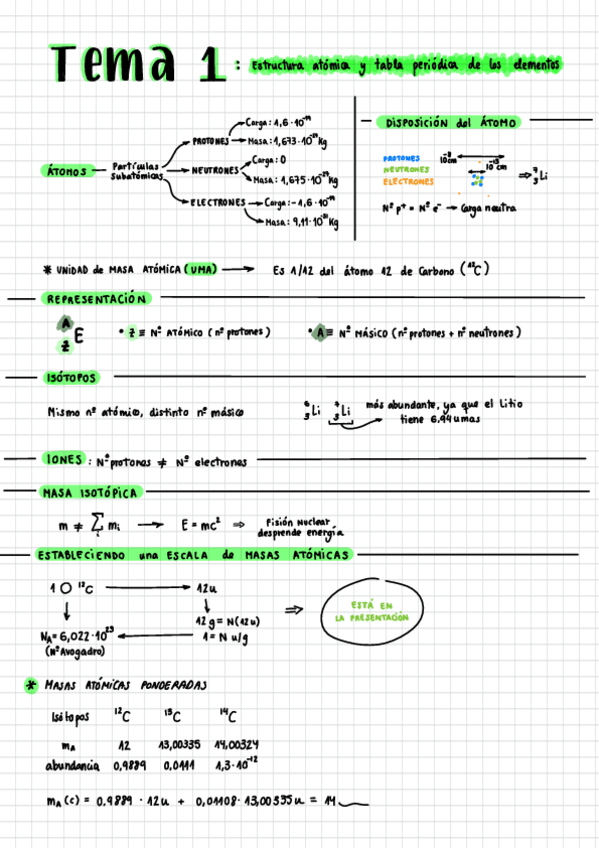 Tema 1: Estructura atómica y tabla periódica de los elementos
ÁTOMOS — Partículas subatómicas
PROTONES
Carga: 1,6·10⁻¹⁹
Masa: 1,673·10⁻²⁷ Kg
NEUTRONES
Carga: 0
Masa: 1,675·10⁻²⁷ Kg
ELECTRONES → Carga: -1,6·10⁻¹⁹
Masa: 9,11·10⁻³¹ Kg
DISPOSICIÓN del ÁTOMO
PROTONES
NEUTRONES
ELECTRONES
10⁻⁸ cm
10⁻¹³ cm
⇒ ⁷₃Li
Nº p⁺ = Nº e⁻ → Carga neutra
* UNIDAD de MASA ATÓMICA (UMA) → Es 1/12 del átomo 12 de Carbono (¹²C)
REPRESENTACIÓN
A
Z E
• Z ≡ Nº ATÓMICO (nº protones)
• A ≡ Nº MÁSICO (nº protones + nº neutrones)
ISÓTOPOS
Mismo nº atómico, distinto nº másico
⁶₃Li ⁷₃Li
más abundante, ya que el Litio
tiene 6.94 umas
IONES: Nº protones ≠ Nº electrones
MASA ISOTÓPICA
m ≠ ∑ mᵢ → E = mc² ⇒ Fisión Nuclear
desprende energía
ESTABLECIENDO una ESCALA de MASAS ATÓMICAS
1 O ¹²C → 12u
12 g = N(12u)
1 = N u/g
N_A = 6,022·10²³
(nº Avogadro)
⇒
ESTÁ EN
LA PRESENTACIÓN
* MASAS ATÓMICAS PONDERADAS
Isótopos ¹²C ¹³C ¹⁴C
m_A 12 13,00335 14,00324
abundancia 0,9889 0,0111 1,3·10⁻¹²
m_A (c) = 0,9889 · 12u + 0,01108 · 13,00335u = 14